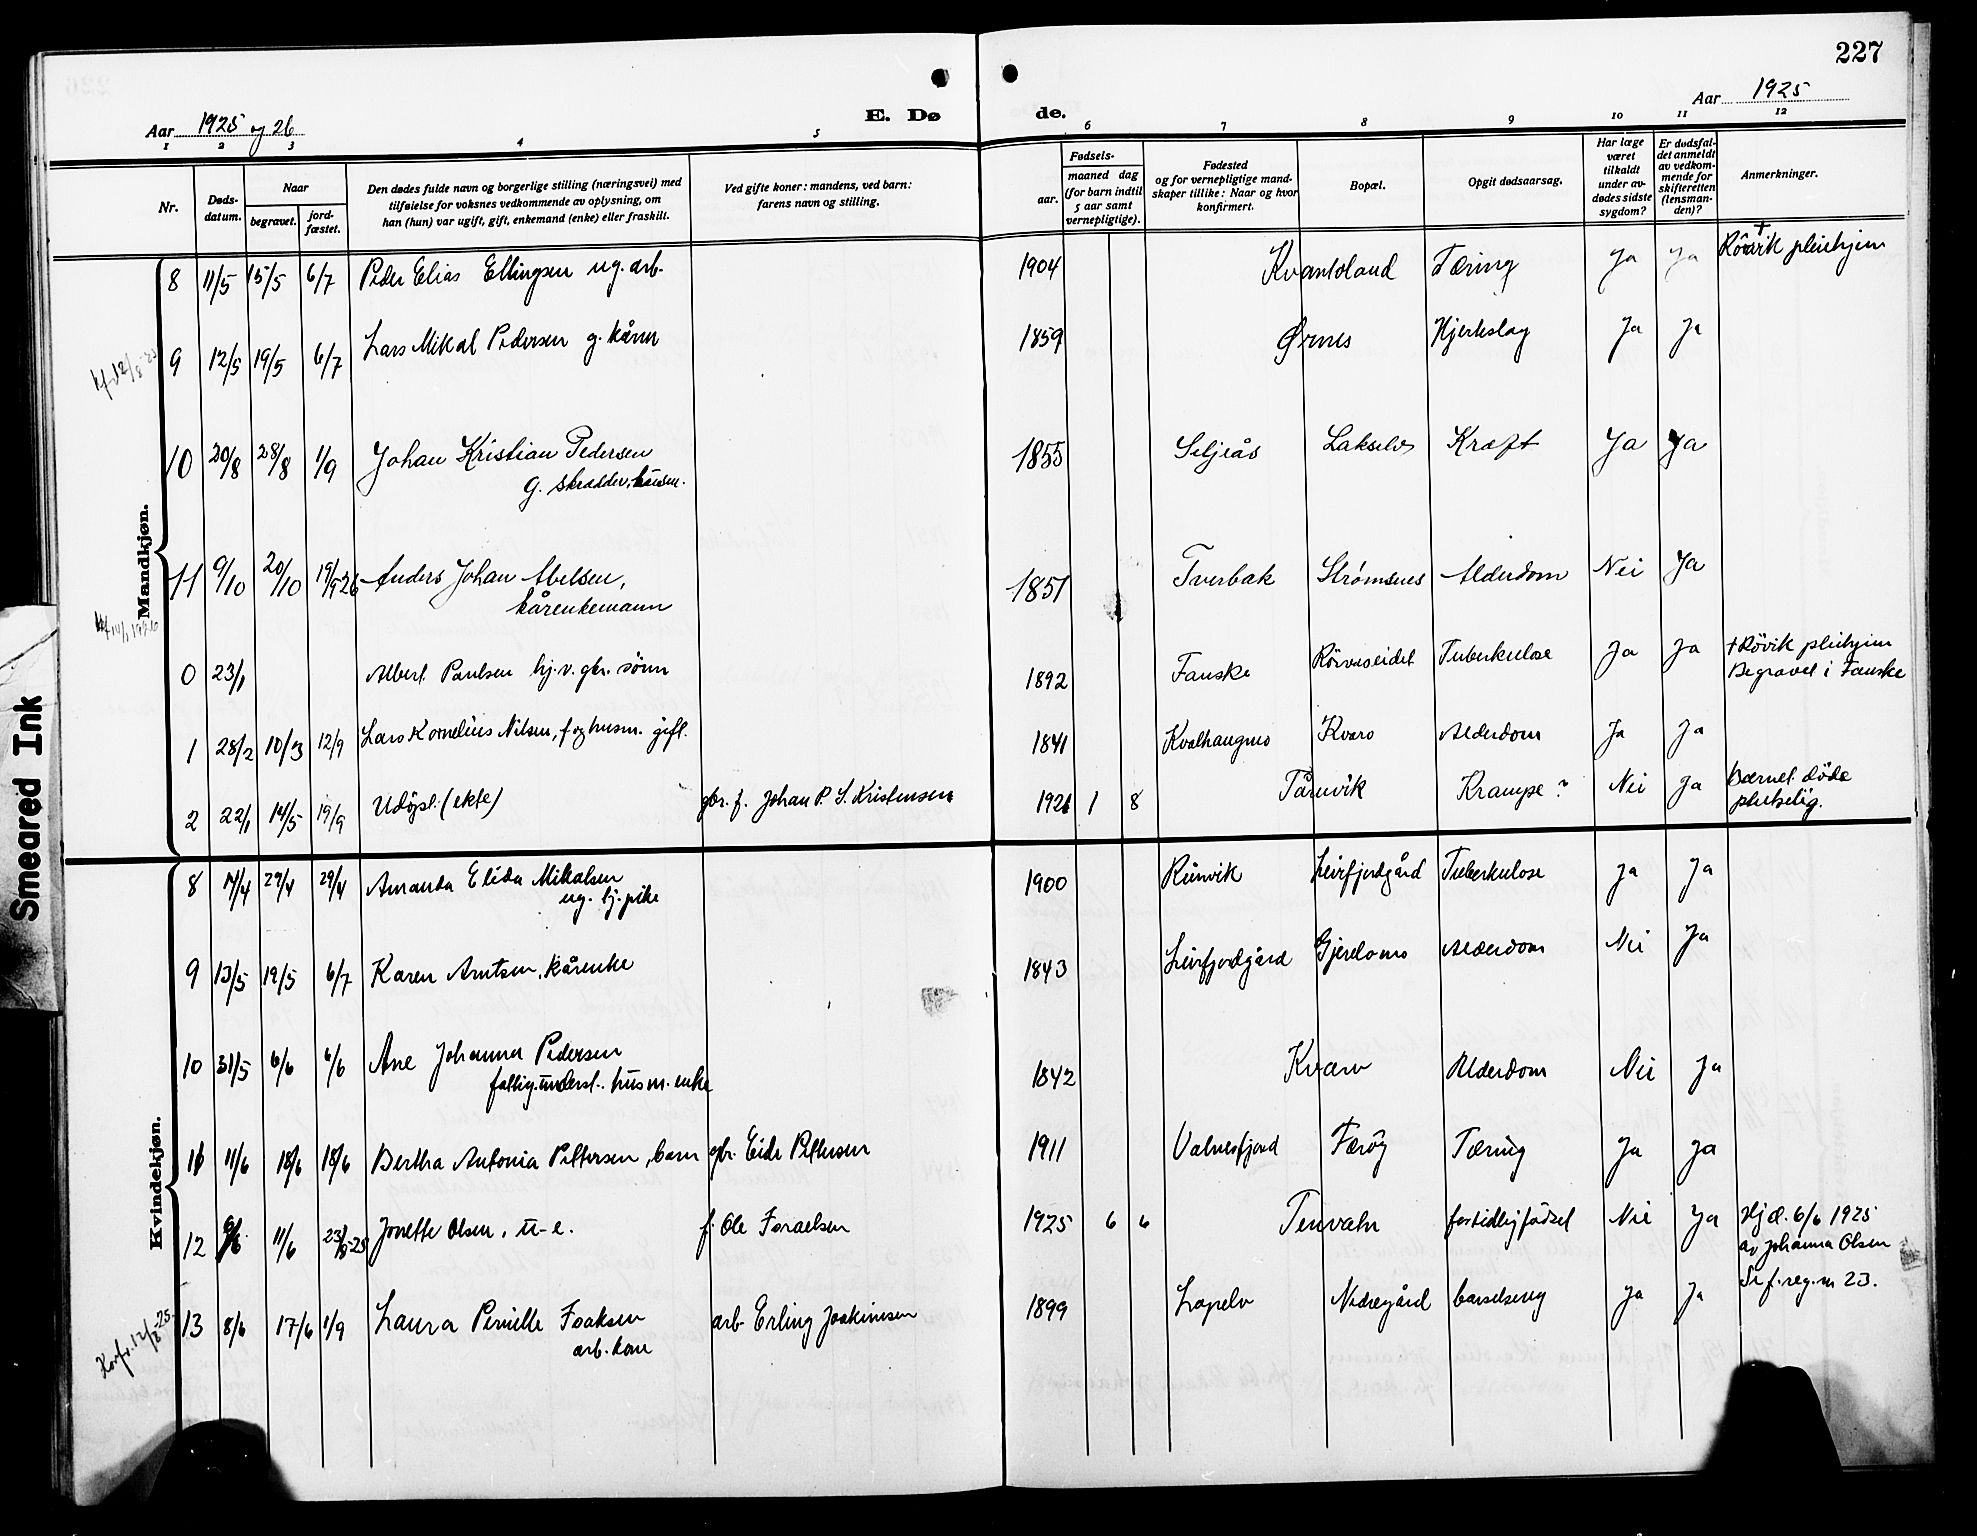 227
Aar 1925 og 26
E. Dø
de.
Aar 1925
1 2 3 4 5 6 7 8 9 10 11 12
Nr.
Døds-
datum.
Naar
begravet.
jord-
fæstet.
Den dødes fulde navn og borgerlige stilling (næringsvei) med
tilføielse for voksnes vedkommende av oplysning, om
han (hun) var ugift, gift, enkemand (enke) eller fraskilt.
Ved gifte koner: mandens, ved barn:
farens navn og stilling.
Fødsels-
aar.
maaned dag
(for barn indtil
5 aar samt
vernepligtige).
Fødested
og for vernepligtige mand-
skaper tillike: Naar og hvor
konfirmert.
Bopæl.
Opgit dødsaarsag.
Har læge
været
tilkaldt
under av-
dødes sidste
sygdom?
Er dødsfal-
det anmeldt
av vedkom-
mende for
skifteretten
(lensman-
den)?
Anmerkninger.
Mandkjøn.
8 11/5 15/5 6/7 Peder Elias Ellingsen ug. arb. 1904 Kvantoland Tæring Ja Ja Rövik pleiehjem
9 12/5 19/5 6/7 Lars Mikal Pedersen g. kårm 1859 Ørnes Hjerteslag Ja Ja
10 20/8 28/8 1/9 Johan Kristian Pedersen 1855 Seljeås Lakselv Kræft Ja Ja
g. skrædder, husm.
11 9/10 20/10 19/9 26 Anders Johan Abelsen, 1851 Tverbak Strømsnes Alderdom Nei Ja
kårenkemann
0 23/1 Albert Paulsen hj. v. gbr. sönn 1892 Fauske Rörvikeidet Tuberkulose Ja Ja + Rövik pleiehjem
Begravet i Fauske
1 28/2 10/3 12/9 Lars Kornelius Nilsen, f og husm. gift. 1841 Kvalhaugmo Kvarv Alderdom Ja Ja
2 22/1 14/5 19/9 Udöpt (ekte) gbr. f. Johan P. S. Kristensen 1926 1 8 Tårnvik Krampe? Nei Ja Barnet döde
pludselig.
Kvindekjøn.
8 17/4 29/4 29/4 Amanda Elida Mikalsen 1900 Leirfjordgård Tuberkulose Ja Ja
ug. hj. pike
9 13/5 19/5 6/7 Karen Arntsen, kårenke 1843 Leirfjordgård Alderdom Nei Ja
10 31/5 6/6 6/6 Ane Johanna Pedersen 1842 Kvarv Alderdom Nei Ja
fattig. underst. husm. enke
11 11/6 18/6 18/6 Bertha Antonia Pettersen, barn gbr. Eide Pettersen 1911 Valnesfjord Færöy Tæring Ja Ja
12 6/6 11/6 23/8-25 Jonette Olsen, u-e. f. Ole Israelsen 1925 6 6 Tenvatn fortidlig födsel Nei Ja Hj.d. 6/6 1925
av Johanna Olsen
Se f. reg. nr 23.
13 8/6 17/6 1/9 Laura Pernille Isaksen arb. Erling Joakimsen 1899 Nedregård barselseng Ja Ja
arb. kone
Smeared Ink